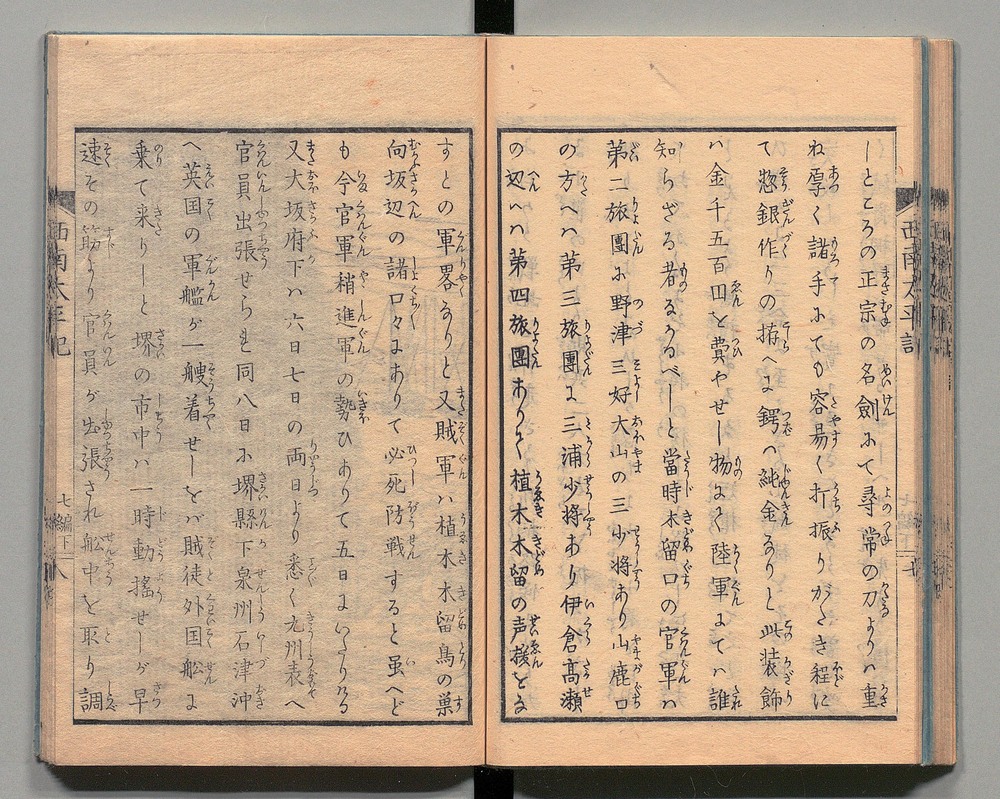 しところの正宗の名劍にて尋常の刀よりハ重
ね厚く諸手にても容易く打振りがたき程に
て惣銀作りの拵へに鍔ハ純金なりと此装飾
ハ金千五百円を費やせし物にて陸軍にてハ誰
知らざる者なかるべしと當時木留口の官軍ハ
第二旅團に野津三好大山の三少将あり山鹿口
の方へハ第三旅團に三浦少将あり伊倉高瀬
の辺へハ第四旅團ありて植木木留の声援をな
すとの軍畧なりと又賊軍ハ植木木留鳥の巣
向坂辺の諸口々にありて必死防戦すると虽へど
も今官軍稍進軍の勢ひありて五日にいたりける
又大坂府下ハ六日七日の両日より悉く九州表へ
官員出張せられ同八日に堺縣下泉州石津沖
へ英国の軍艦が一艘着せしをバ賊徒外国船に
乗て来りしと堺の市中ハ一時動揺せしが早
速その筋より官員が出張され船中を取り調
西南太平記
七編下